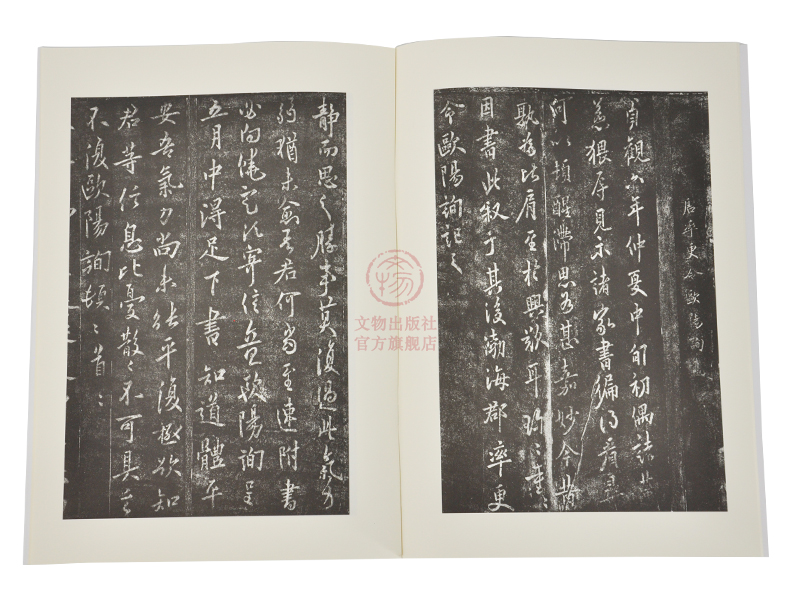 唐率更令歐陽詢
貞觀六年仲夏中旬初偶
猥存見示諸家書遍得看
何以頓醒滯思甚嘉妙今
比肩至於興歎耳
因書此敘了其後渤海郡率更
令歐陽詢記之
靜而思之勝事莫復過此氣力
弱猶未愈吾君何當至速附書
必向饒定 寄信立具歐陽詢呈
五月中得足下書知道體平
安吾氣力尚未能平復極欲知
君等信息比憂散散不可具言
不復歐陽詢頓頓首首
文物出版社
官方旗艦店